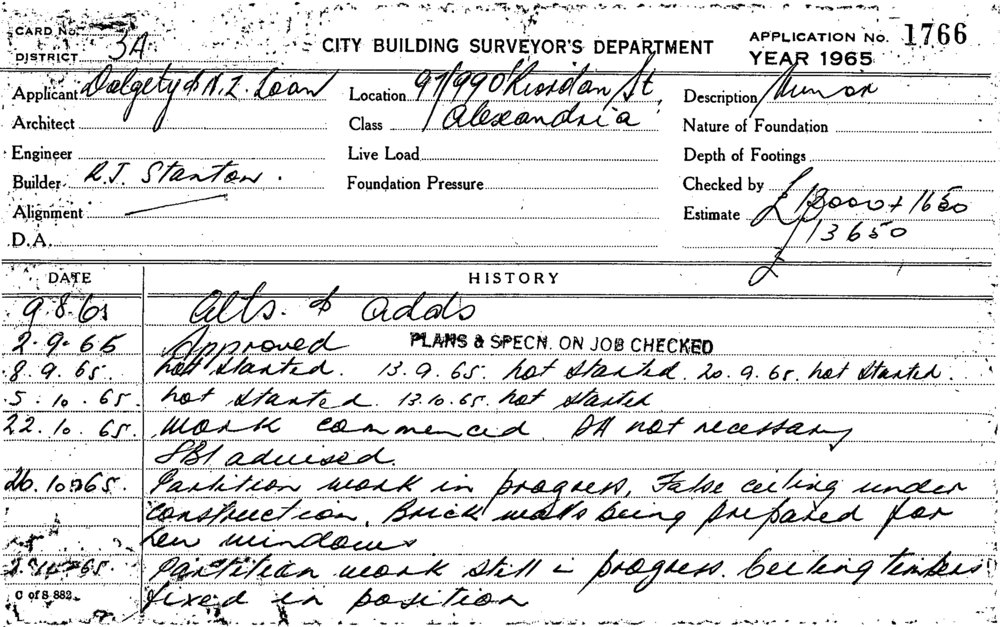 CARD No. 3A
DISTRICT
CITY BUILDING SURVEYOR'S DEPARTMENT
APPLICATION No. 1766
YEAR 1965
Applicant Dalgety & N.Z. Loan
Location 97/99 O'Riordan St,
Description Minor
Architect
Class Alexandria
Nature of Foundation
Engineer
Live Load
Depth of Footings
Builder R.J. Stanton.
Foundation Pressure
Checked by
Alignment
Estimate £12000 + 1650
D.A.
£13650
DATE HISTORY
9.8.65 Alts. & adds
2.9.65 Approved PLANS & SPECN. ON JOB CHECKED
8.9.65. not started. 13.9.65. not started. 20.9.65. not started.
5.10.65. not started. 13.10.65. not started
22.10.65. Work commenced. DA not necessary
SBI advised.
26.10.65. Partition work in progress, False ceiling under
construction. Brick walls being prepared for
new windows
.65. Partition work still in progress. Ceiling timbers
C of S 882. fixed in position